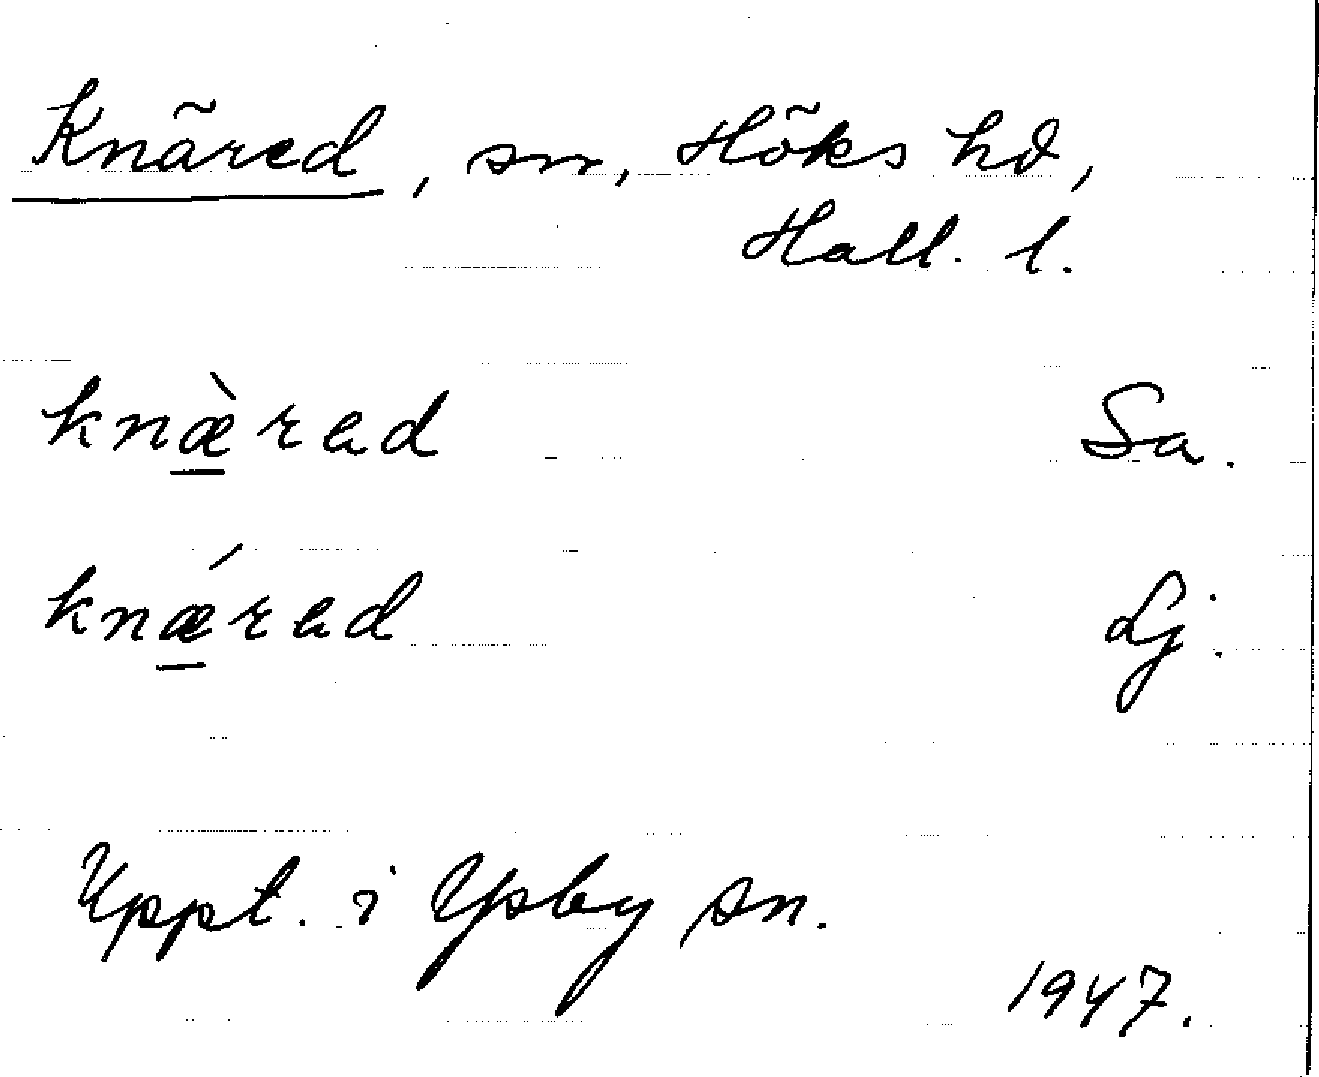 Knäred, sn, Höks hd,
Hall. l.
knæ̀rad Sa.
knǽrad Lj.
Uppt. i Ysby sn.
1947.